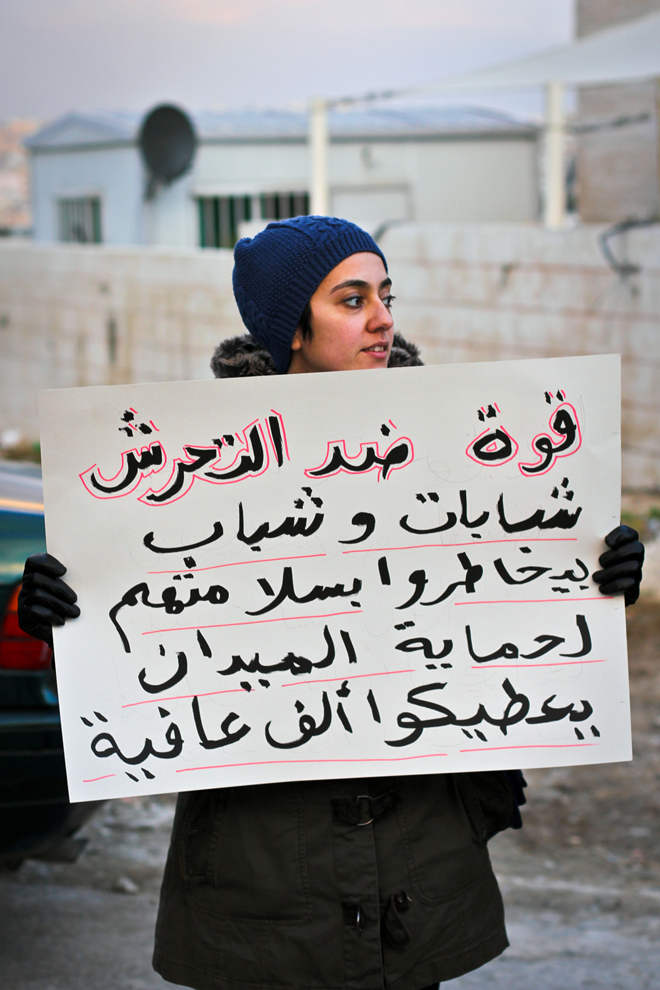 قوة ضد التحرش
شبابات و شباب
بيخاطروا بسلامتهم
لحماية الميدان
يعطيكوا ألف عافية